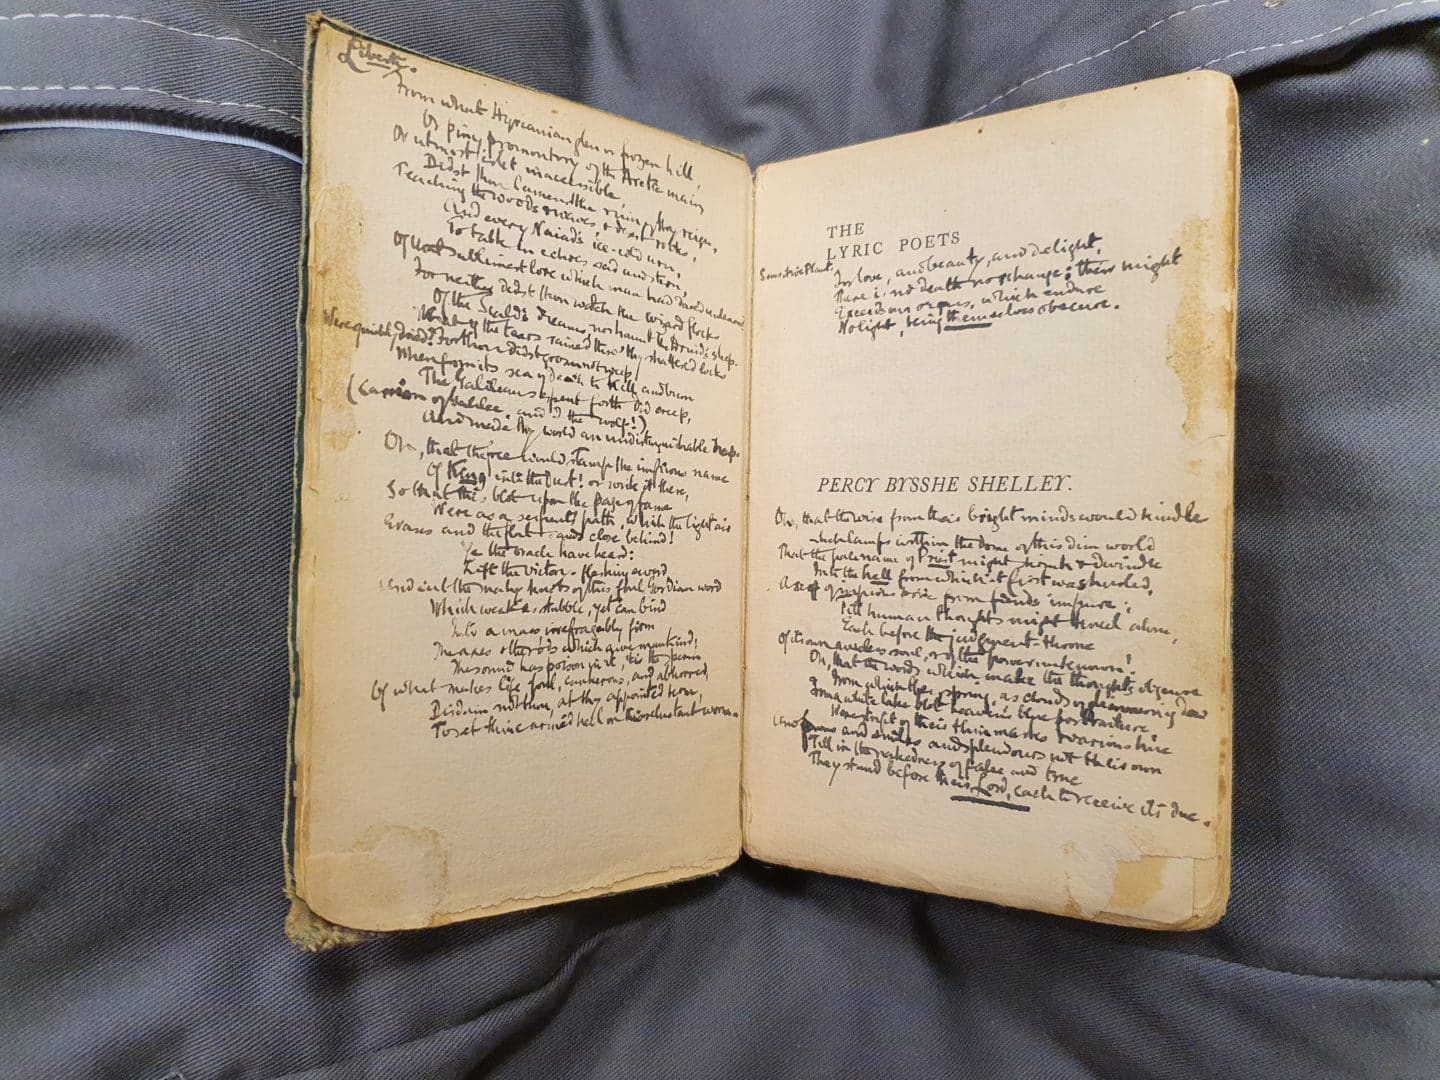 Liberty.
From what Hyrcanian glen or frozen hill,
Or piny promontory of the Arctic main,
Or utmost islet inaccessible,
Didst thou lament the ruin of thy reign,
Teaching the woods & waves, & desert rocks,
And every Naiad's ice-cold urn,
To talk in echoes sad and stern,
Of that sublimest lore which man had dared unlearn?
For neither didst thou watch the wizard flocks
Of the Scald's dreams, nor haunt the Druid's sleep.
What if the tears rained thro' thy shattered locks
Were quickly dried? For thou didst groan not weep,
When from its sea of death to kill and burn
The Galilean serpent forth did creep,
(Carrion of Galilee, and I the wolf!)
And made thy world an undistinguishable heap.
Oh, that the free would stamp the impious name
Of King into the dust! or write it there,
So that this blot upon the page of fame
Were as a serpent's path, which the light air
Erases and the flat sands close behind!
Ye the oracle have heard:
Lift the victory-flashing sword
And cut the snaky knots of this foul Gordian word
Which weak as stubble, yet can bind
Into a mass irrefragably firm
The axes & the rods which awe mankind;
The sound has poison in it, 'tis the sperm
Of what makes life foul, cankerous, and abhorred,
Disdain not thou, at thy appointed term,
To set thine armed heel on this reluctant worm.
THE
LYRIC POETS
Sensitive Plant
For love, and beauty, and delight,
There is no death nor change: their might
Exceeds our organs, which endure
No light, being themselves obscure.
PERCY BYSSHE SHELLEY.
Oh, that the wise from their bright minds would kindle
Such lamps within the dome of this dim world
That the pale name of Priest might shrink & dwindle
Into the hell from which it first was hurled,
A scoff of impious pride from fiends impure;
Till human thoughts might kneel alone,
Each before the judgment-throne
Of its own aweless soul, or of the power unknown!
Oh, that the words which make the thoughts obscure
From which they spring, as clouds of glimmering dew
From a white lake blot heaven's blue portraiture,
Were stript of their thin masks & various hue
And frowns and smiles and splendours not their own
Till in the nakedness of false and true
They stand before their Lord, each to receive its due.